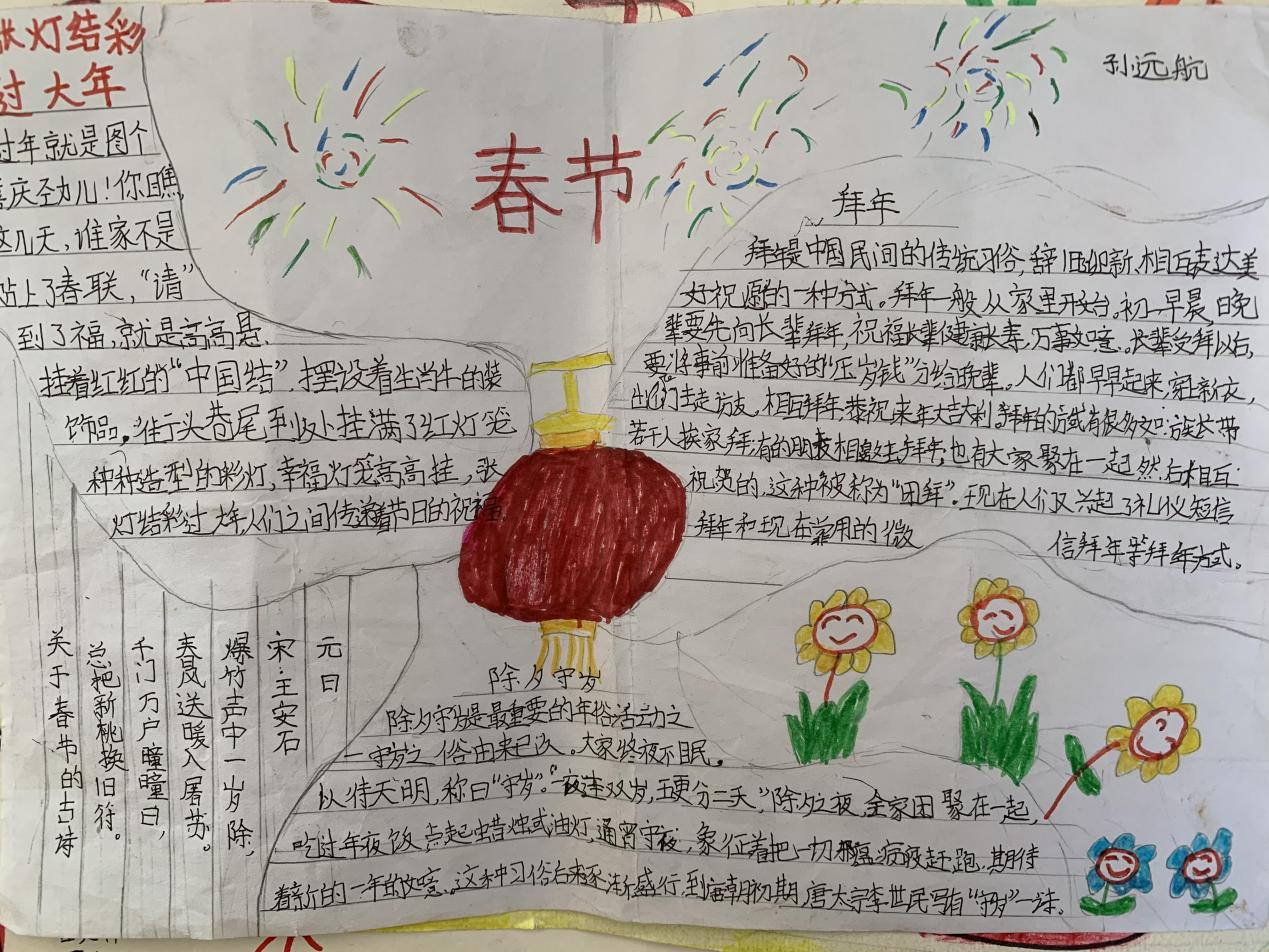 张灯结彩
过大年
过年就是图个
喜庆劲儿！你瞧，
这几天，谁家不是
贴上了春联，“请”
到了福，就是高高悬
挂着红红的“中国结”.摆设着生肖牛的装
饰品。街头巷尾到处挂满了红灯笼
种种造型的彩灯，幸福灯笼高高挂，张
灯结彩过大年，人们之间传递着节日的祝福。
春节
孙远航
拜年
拜年是中国民间的传统习俗，辞旧迎新、相互表达美
好祝愿的一种方式。拜年一般从家里开始。初一早晨晚
辈要先向长辈拜年，祝福长辈健康长寿，万事如意。长辈受拜以后，
要将事前准备好的“压岁钱”分给晚辈。人们都早早起来，穿新衣，
出门去走访友，相互拜年恭祝来年大吉大利。拜年的方式有很多如：族长带
若干人挨家拜，有的朋友相邀去拜年；也有大家聚在一起然后相互
祝贺的，这种被称为“团拜”。现在人们又兴起了礼仪短信
拜年和现在常用的微
信拜年等拜年方式。
关于春节的古诗
元日
宋·王安石
爆竹声中一岁除，
春风送暖入屠苏。
千门万户曈曈日，
总把新桃换旧符。
除夕守岁
除夕守岁是最重要的年俗活动之
一守岁之俗由来已久。大家终夜不眠。
以待天明，称曰“守岁”。“一夜连双岁，五更分二天，”除夕之夜，全家团聚在一起，
吃过年夜饭，点起蜡烛或油灯，通宵守夜，象征着把一切邪瘟病疫赶跑，期待
着新的一年的如意。这种习俗后来逐渐盛行，到唐朝初期，唐太宗李世民写有“守岁”一诗。